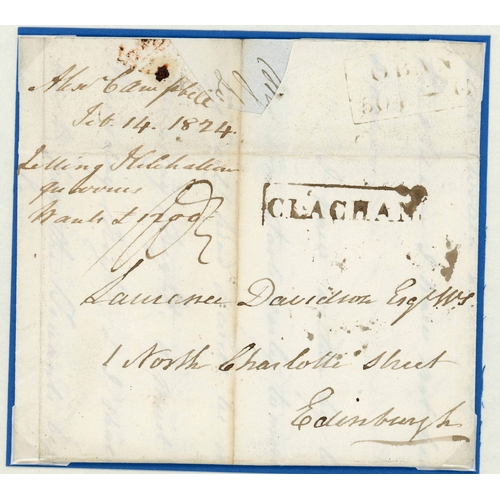 Alexr Campbell
Feb. 14. 1824
Letting Kilchattan
quarries
Wants £1200
OBAN
CLACHAN
Laurence Davidson Esqr WS.
1 North Charlotte Street
Edinburgh